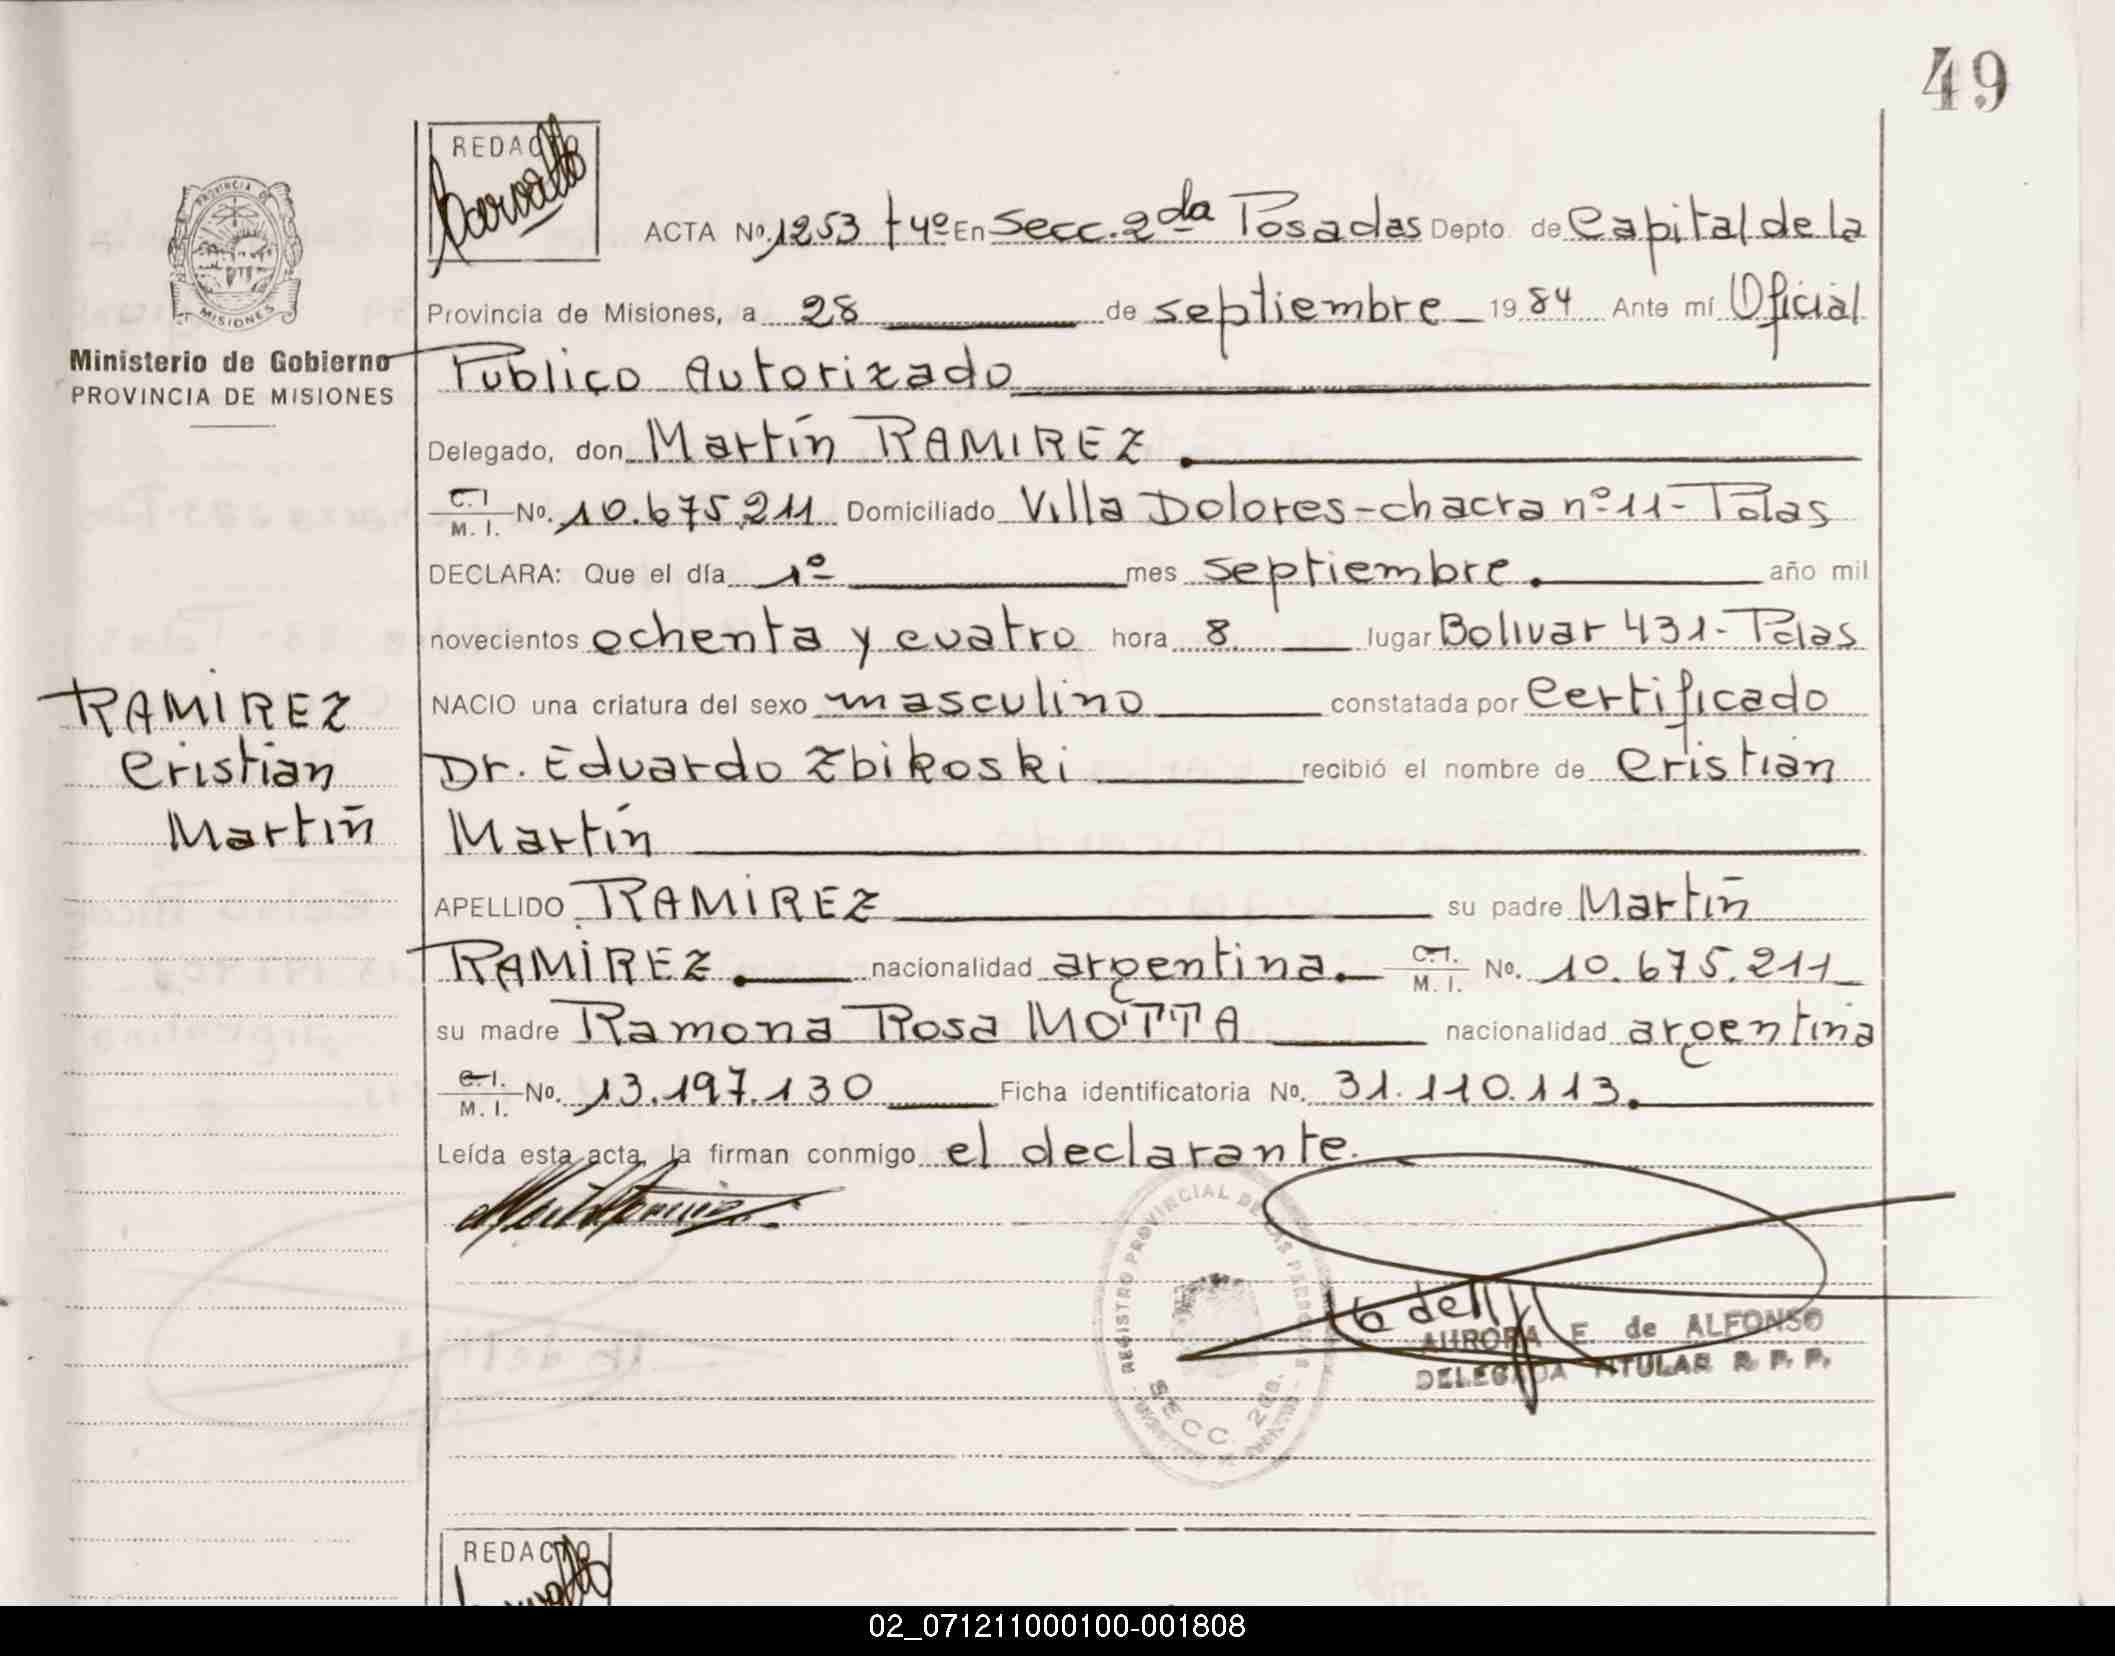 49
REDACTO
ACTA Nº. 1253 t 4º En Secc. 2da Posadas Depto. de Capital de la
Provincia de Misiones, a 28 de septiembre 1984 Ante mí Oficial
Público Autorizado
Delegado, don Martín RAMIREZ
C.I. M. I. Nº. 10.675.211 Domiciliado Villa Dolores - chacra nº 11 - Pdas
DECLARA: Que el día 1º mes septiembre. año mil
novecientos ochenta y cuatro hora 8. lugar Bolivar 431 - Pdas
NACIO una criatura del sexo masculino constatada por Certificado
Dr. Eduardo Zbikoski recibió el nombre de Cristian
Martín
APELLIDO RAMIREZ su padre Martín
RAMIREZ. nacionalidad argentina. C.I. M. I. Nº. 10.675.211
su madre Ramona Rosa MOTTA nacionalidad argentina
C.I. M. I. Nº. 13.197.130 Ficha identificatoria Nº. 31.110.113.
Leída esta acta, la firman conmigo el declarante.
PROVINCIA DE
MISIONES
Ministerio de Gobierno
PROVINCIA DE MISIONES
RAMIREZ
Cristian
Martín
REGISTRO PROVINCIAL DE LAS PERSONAS
SECC. 2da.
AURORA E. de ALFONSO
DELEGADA TITULAR R. P. P.
REDACTO
02_071211000100-001808